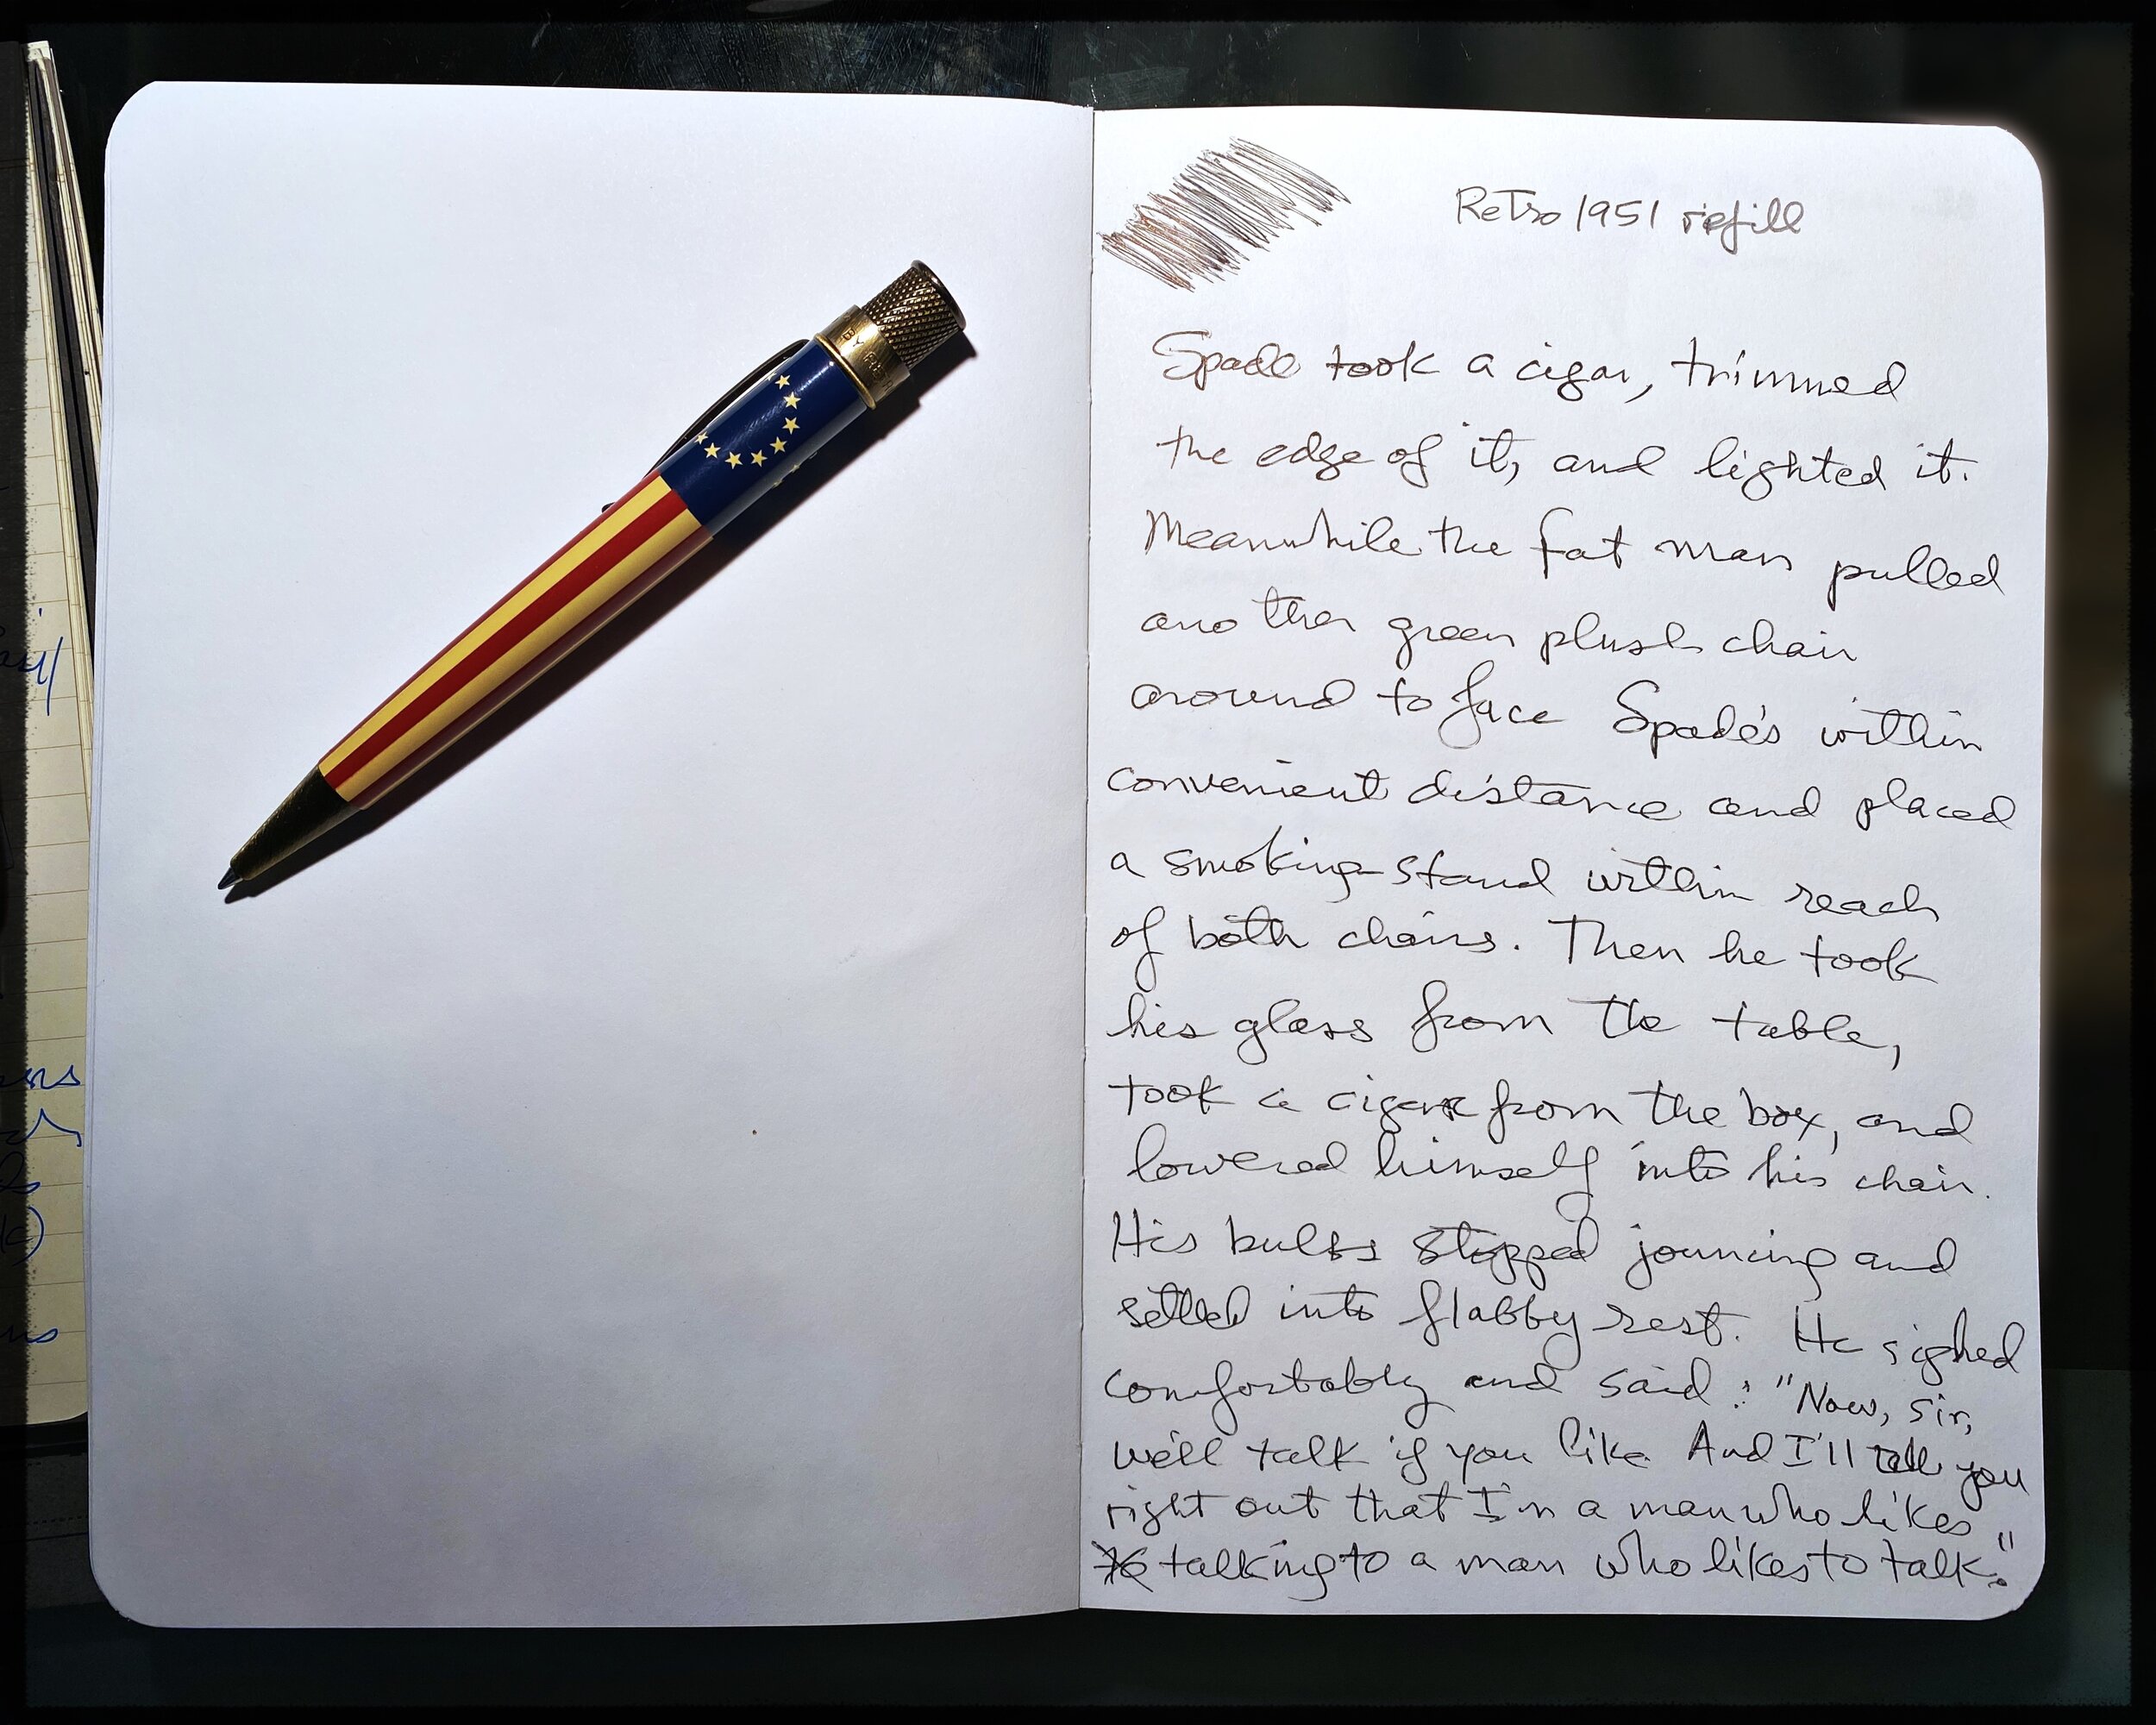 Retro 1951 refill
Spade took a cigar, trimmed
the edge of it, and lighted it.
Meanwhile the fat man pulled
another green plush chair
around to face Spade's within
convenient distance and placed
a smoking-stand within reach
of both chairs. Then he took
his glass from the table,
took a cigar from the box, and
lowered himself into his chair.
His bulbs stopped jouncing and
settled into flabby rest. He sighed
comfortably and said: "Now, sir,
we'll talk if you like. And I'll tell you
right out that I'm a man who likes
talking to a man who likes to talk."